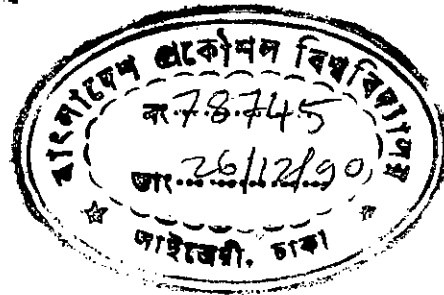 বাংলাদেশ প্রকৌশল বিশ্ববিদ্যালয়
নং 78745
তাং 26/12/90
লাইব্রেরী, ঢাকা